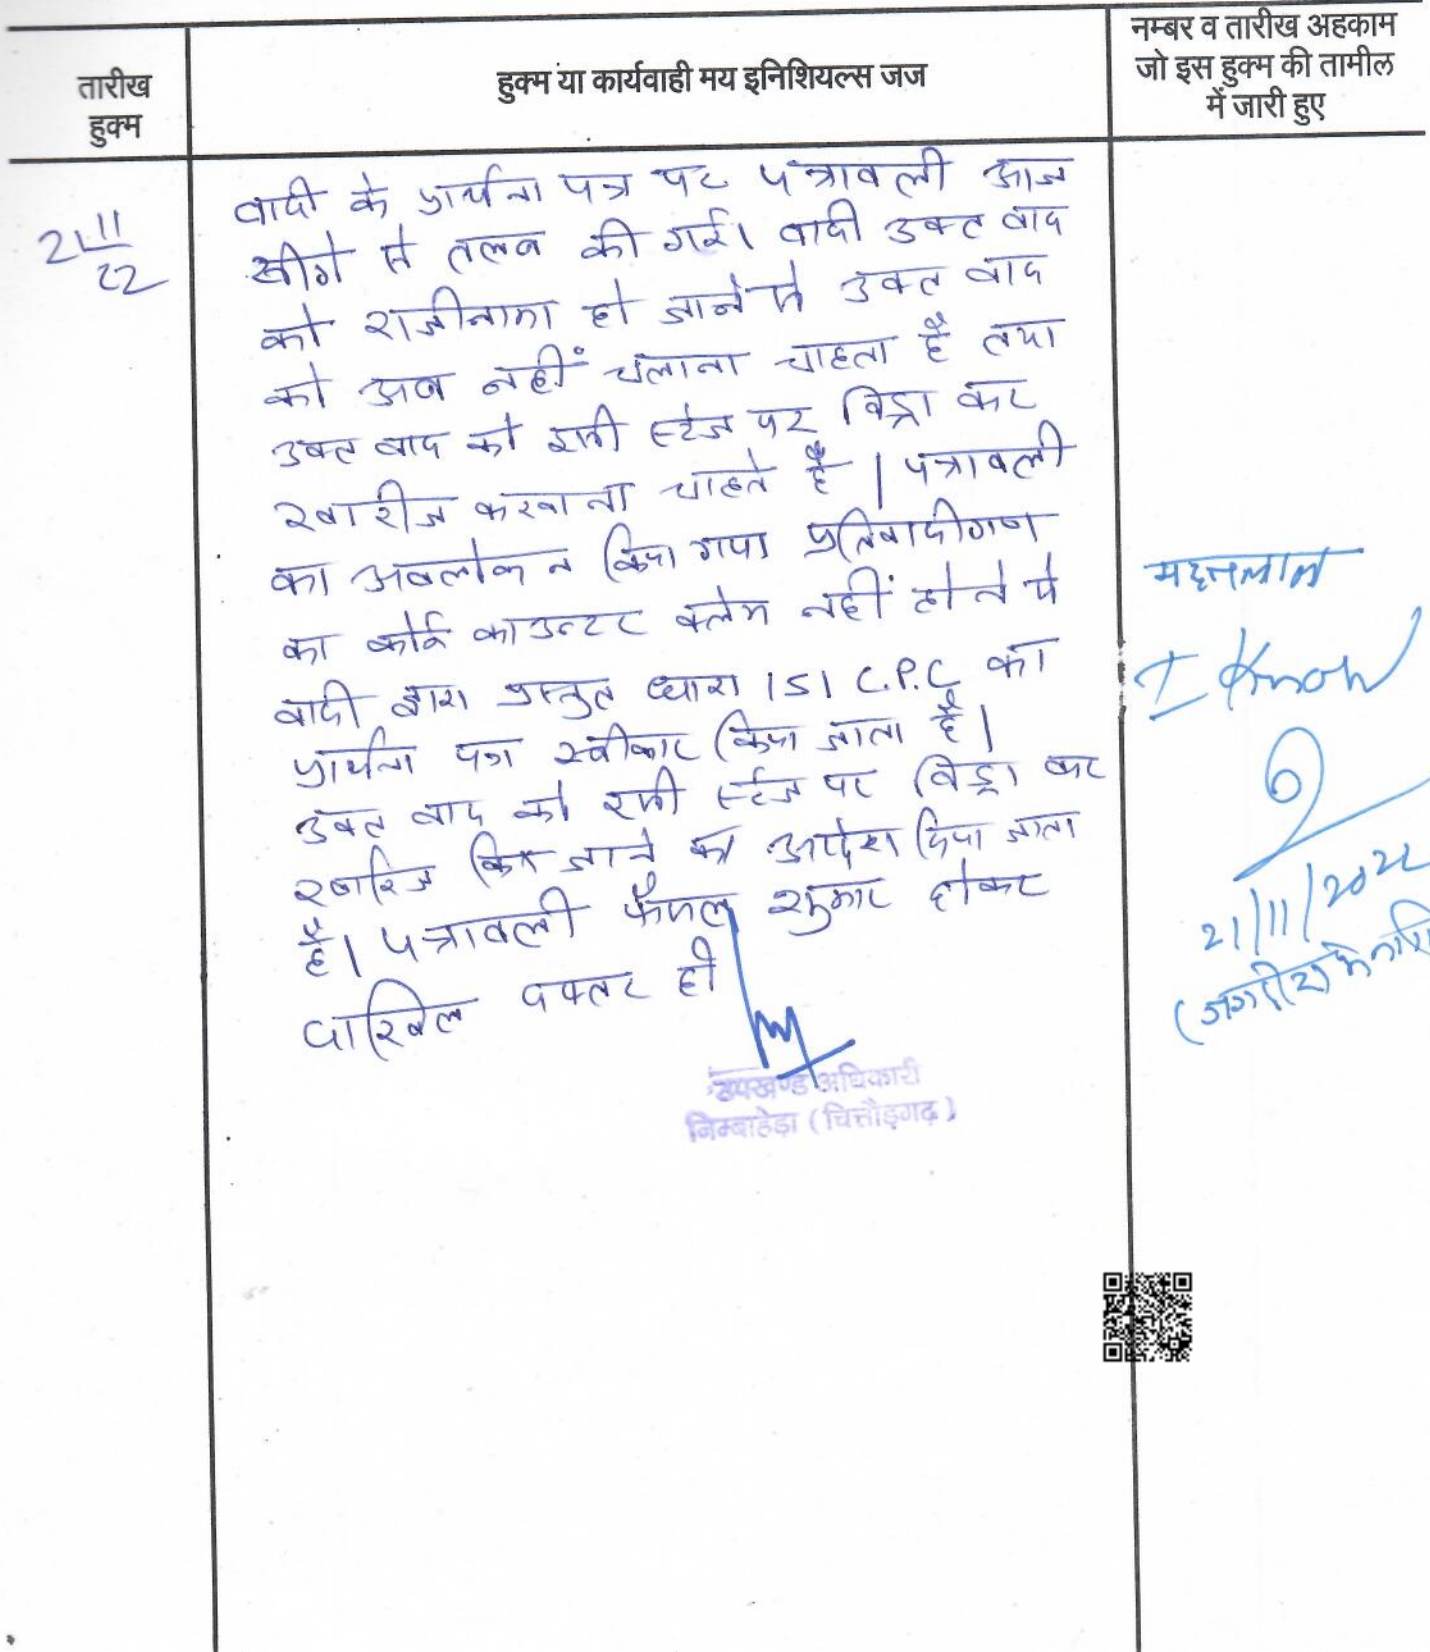 तारीख
हुक्म
हुक्म या कार्यवाही मय इनिशियल्स जज
नम्बर व तारीख अहकाम
जो इस हुक्म की तामील
में जारी हुए
21 11
22
वादी के प्रार्थना पत्र पर पत्रावली आज
सीगे से तलब की गई। वादी उक्त वाद
को राजीनामा हो जाने से उक्त वाद
को अब नहीं चलाना चाहता है तथा
उक्त वाद को इसी स्टेज पर विड्रा कर
खारीज करवाना चाहते है। पत्रावली
का अवलोकन किया गया प्रतिवादीगण
का कोई काउन्टर क्लेम नहीं होने से
वादी द्वारा प्रस्तुत धारा 151 C.P.C का
प्रार्थना पत्र स्वीकार किया जाता है।
उक्त वाद को इसी स्टेज पर विड्रा कर
खारिज किए जाने का आदेश दिया जाता
है। पत्रावली फैसल शुमार होकर
दाखिल दफ्तर हो
उपखण्ड अधिकारी
निम्बाहेड़ा (चित्तौड़गढ़)
मदनलाल
I Know
21/11/2022